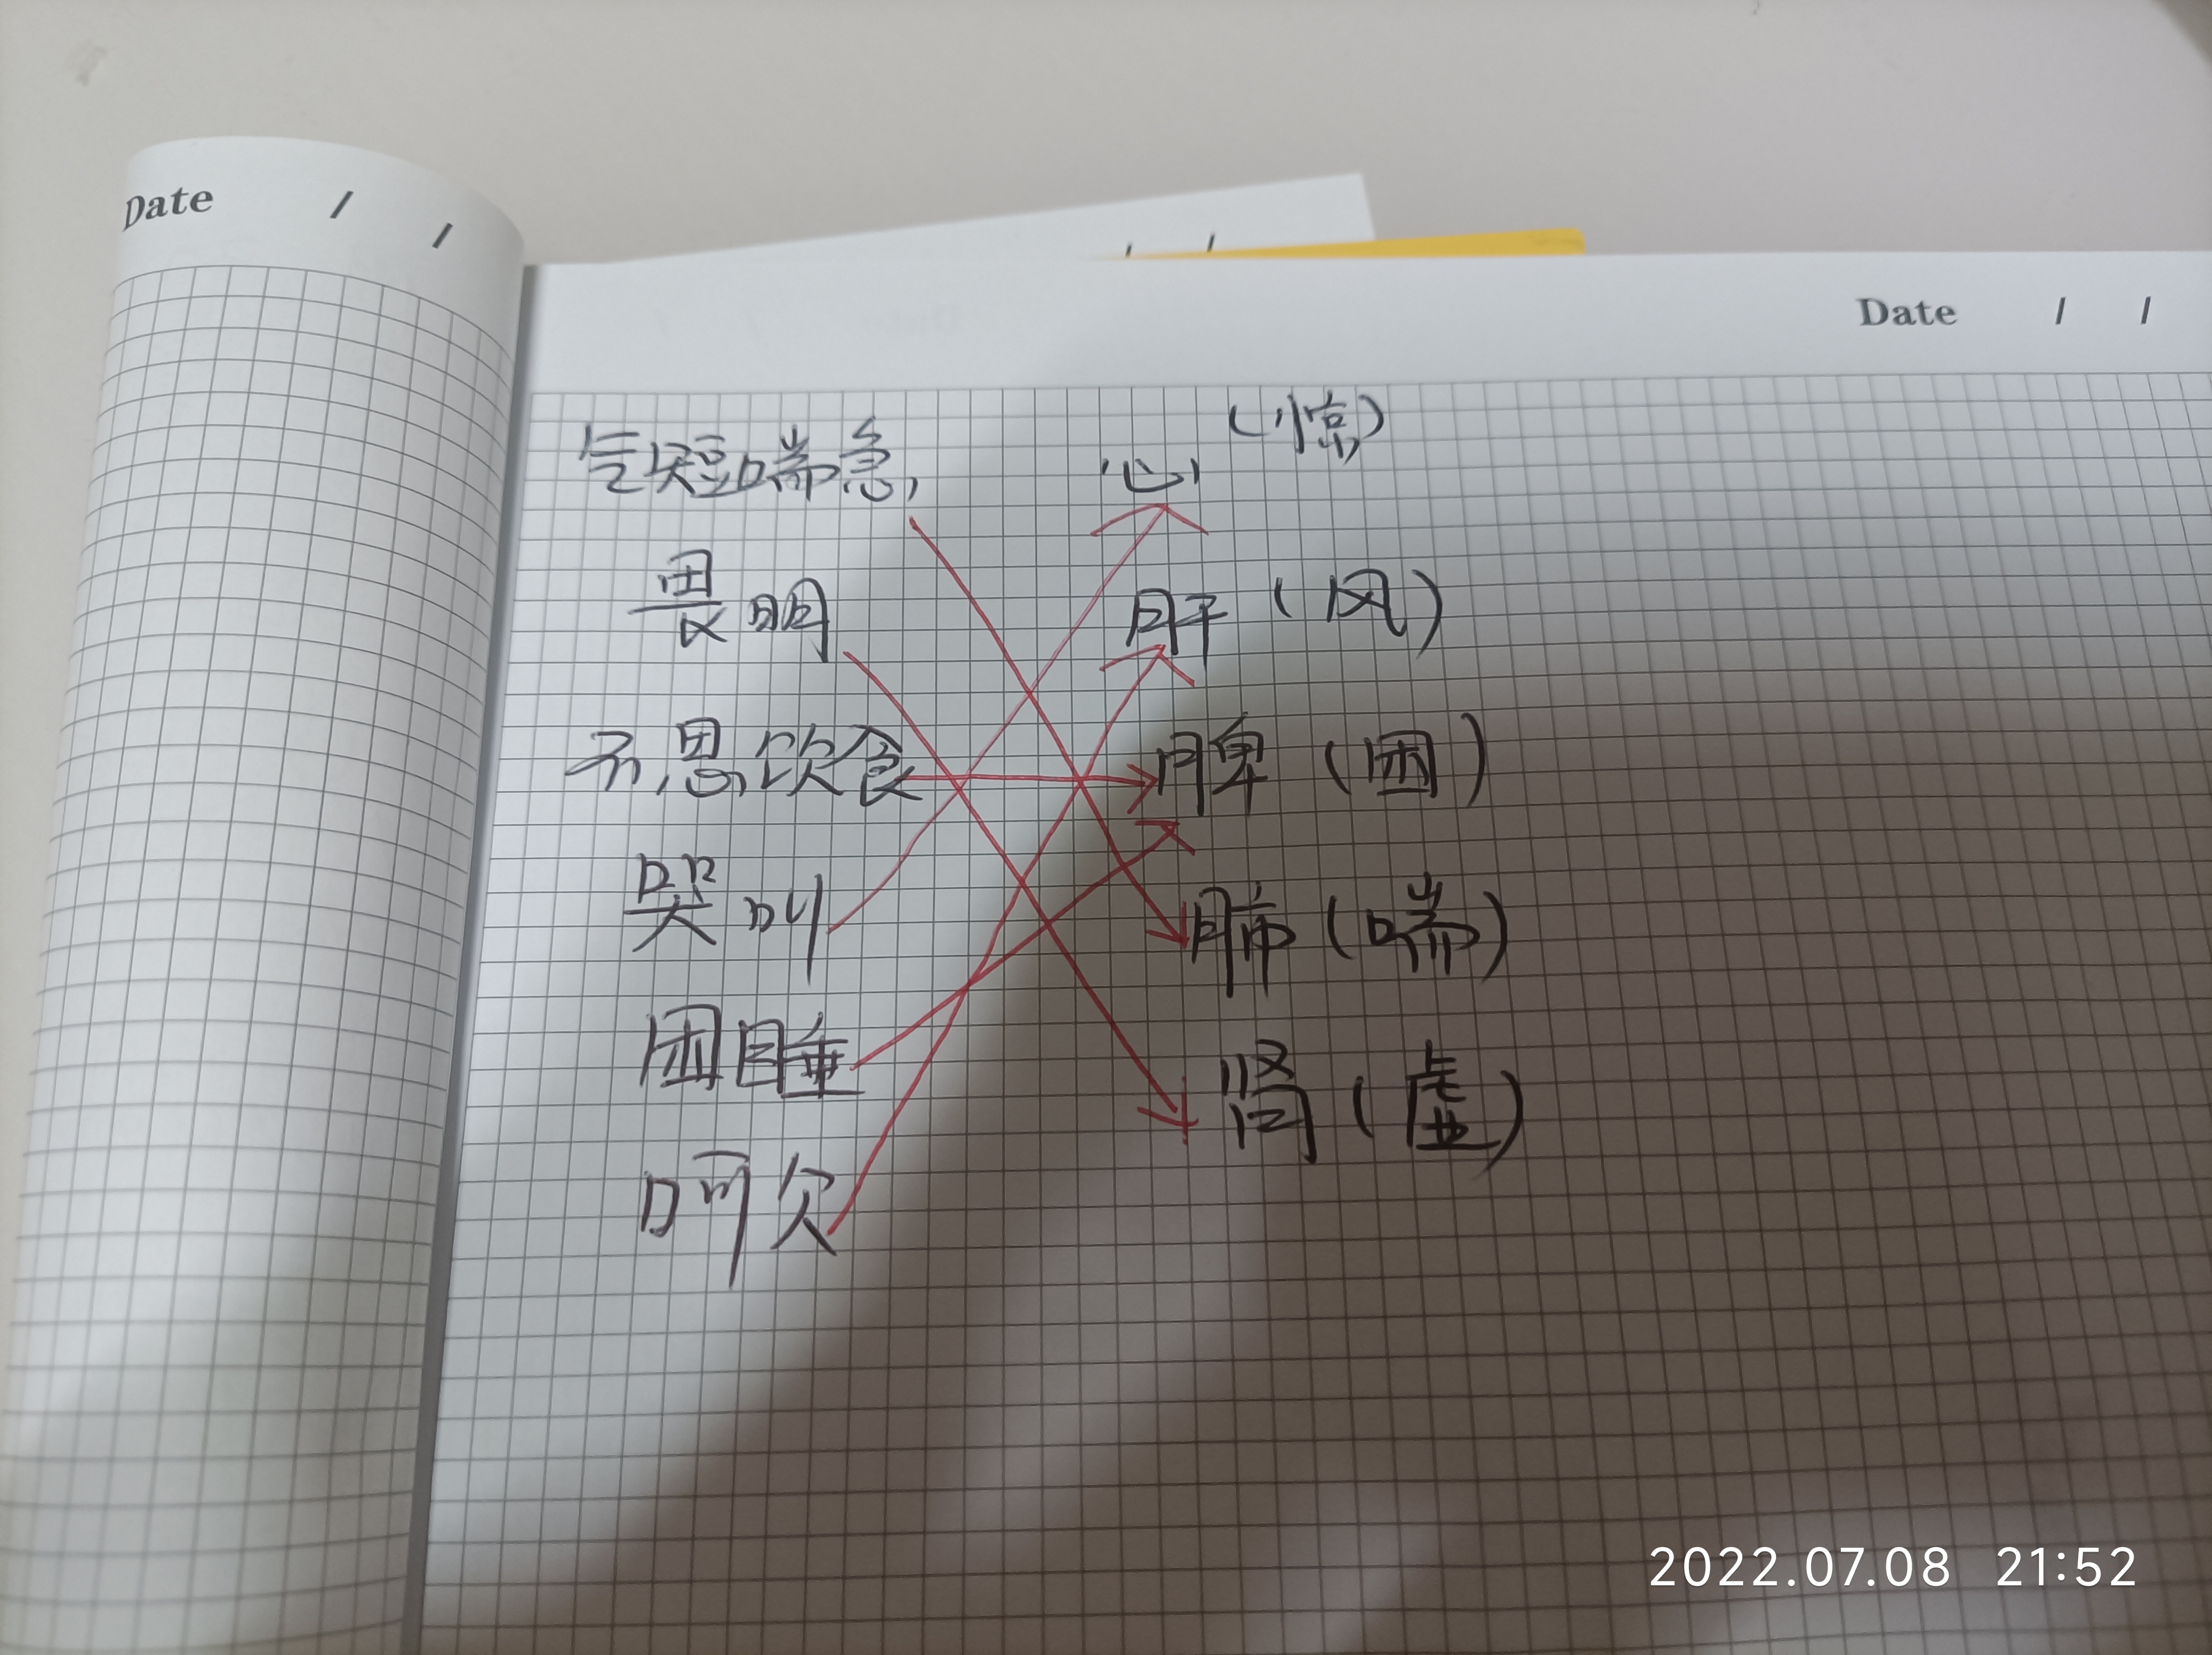 Date / /
Date / /
气短喘急
心(惊)
畏明
肝(风)
不思饮食
脾(困)
哭叫
肺(喘)
困睡
肾(虚)
呵欠
2022.07.08 21:52